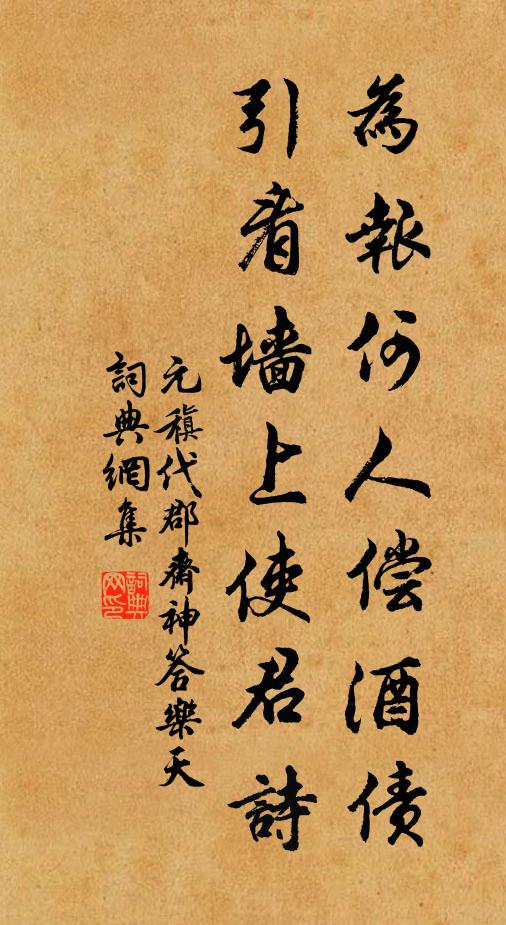 為報何人偿酒债
引看墙上使君詩
元稹代郡齋神答樂天
詞典網集
詞典网印